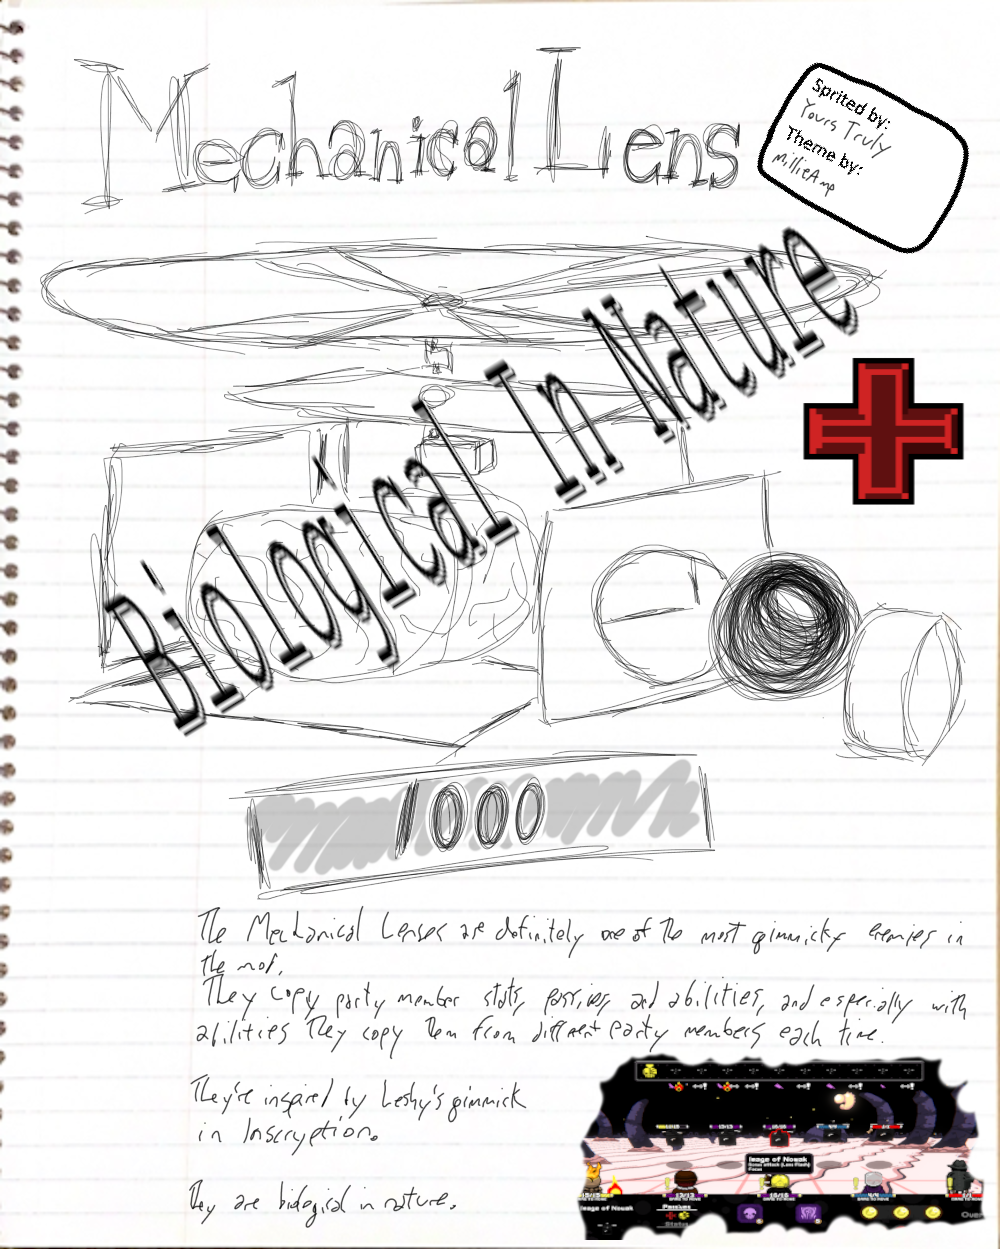 Mechanical Lens
Sprited by:
Yours Truly
Theme by:
MillieAmp
Biological In Nature
The Mechanical Lenses are definitely one of the most gimmicky enemies in
the mod.
They copy party member stats, passives, and abilities, and especially with
abilities they copy them from different party members each time.
They're inspired by Leshy's gimmick
in Inscryption.
They are biological in nature.
Image of Nowak
Image of Nowak
Passives
Status